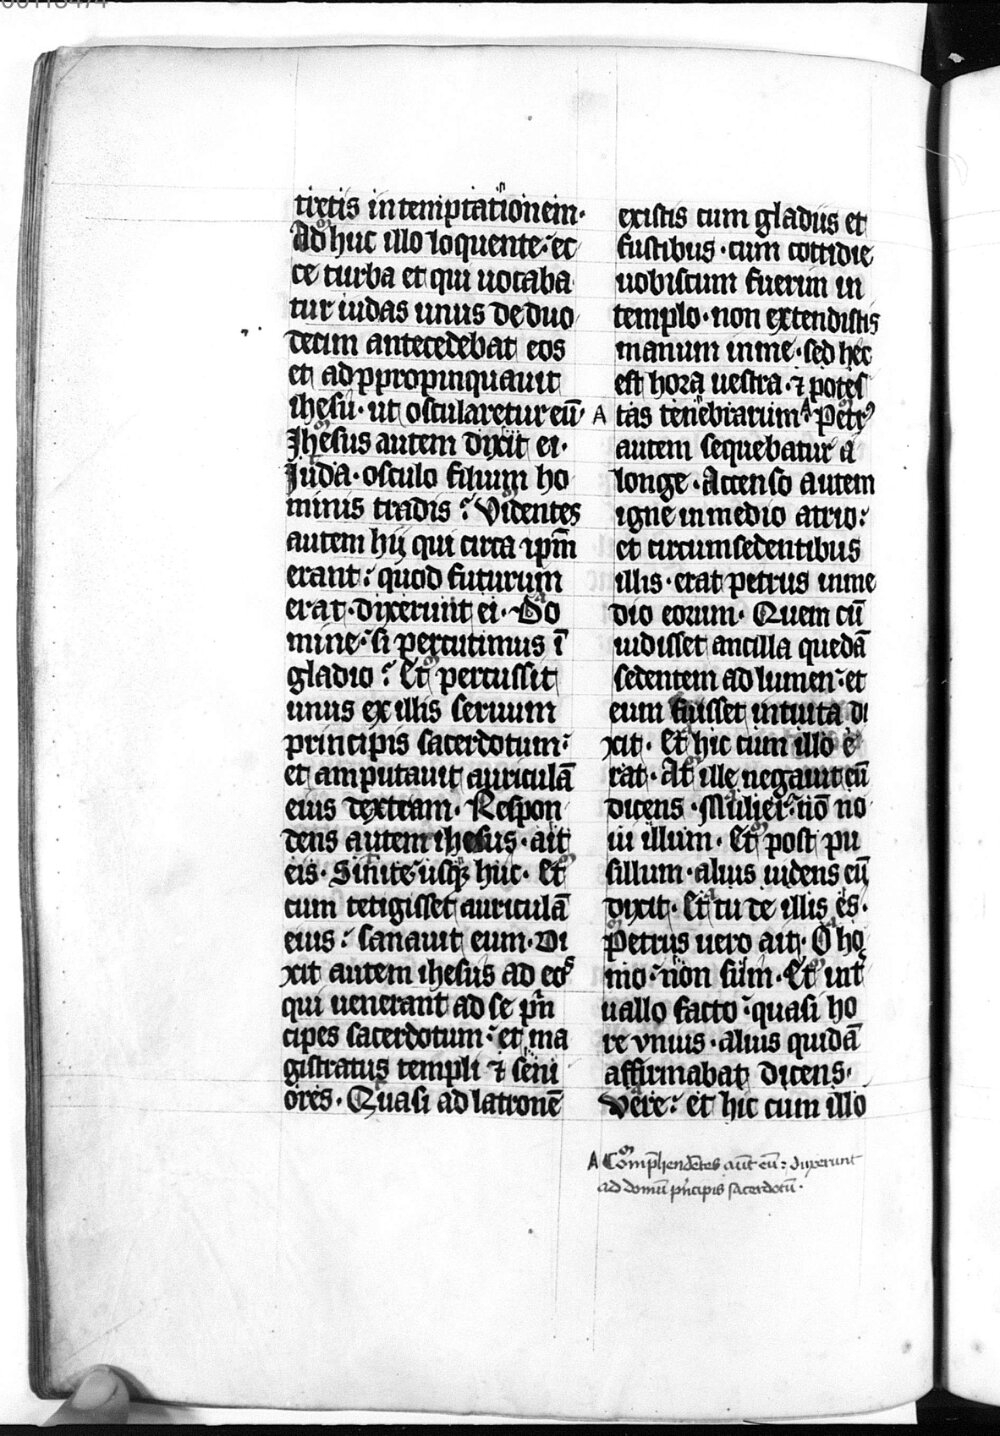 tretis in temptationem.
Ad huc illo loquente: ec
ce turba et qui uocaba
tur iudas unus de duo
decim antecedebat eos
et adppropinquauit
ihesu. ut oscularetur eū
Jhesus autem dixit ei.
Juda. osculo filium ho
minis tradis? Videntes
autem hij qui circa ipm̄
erant: quod futurum
erat. dixerunt ei. Do
mine. si percutimus ī
gladio? Et percussit
unus ex illis seruum
principis sacerdotum:
et amputauit auriculā
eius dextram. Respon
dens autem ihesus. ait
eis. Sinite usqꝫ huc. Et
cum tetigisset auriculā
eius: sanauit eum. Di
xit autem ihesus ad eos
qui uenerant ad se prin
cipes sacerdotum: et ma
gistratus templi ⁊ seni
ores. Quasi ad latronē
existis cum gladiis et
fustibus. cum cottidie
uobiscum fuerim in
templo. non extendistis
manum in me. sed hec
est hora uestra. ⁊ potes
A tas tenebrarum. A Petrꝰ
autem sequebatur a
longe. Accenso autem
igne in medio atrio:
et circumsedentibus
illis. erat petrus in me
dio eorum. Quem cū
uidisset ancilla quedā
sedentem ad lumen: et
eum fuisset intuita di
xit. Et hic cum illo e
rat. At ille negauit eū
dicens. Mulier: nō no
ui illum. Et post pu
sillum. alius uidens eū
dixit. Et tu de illis es.
Petrus uero ait. O ho
mo: non sum. Et int
uallo facto: quasi ho
re vnius. alius quidā
affirmabat dicens.
Vere: et hic cum illo
A Comp̄hendētes aūt eū: duxerunt
ad domū pncipis sacerdotū.